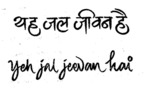 यह जल जीवन है
Yeh jal jeevan hai